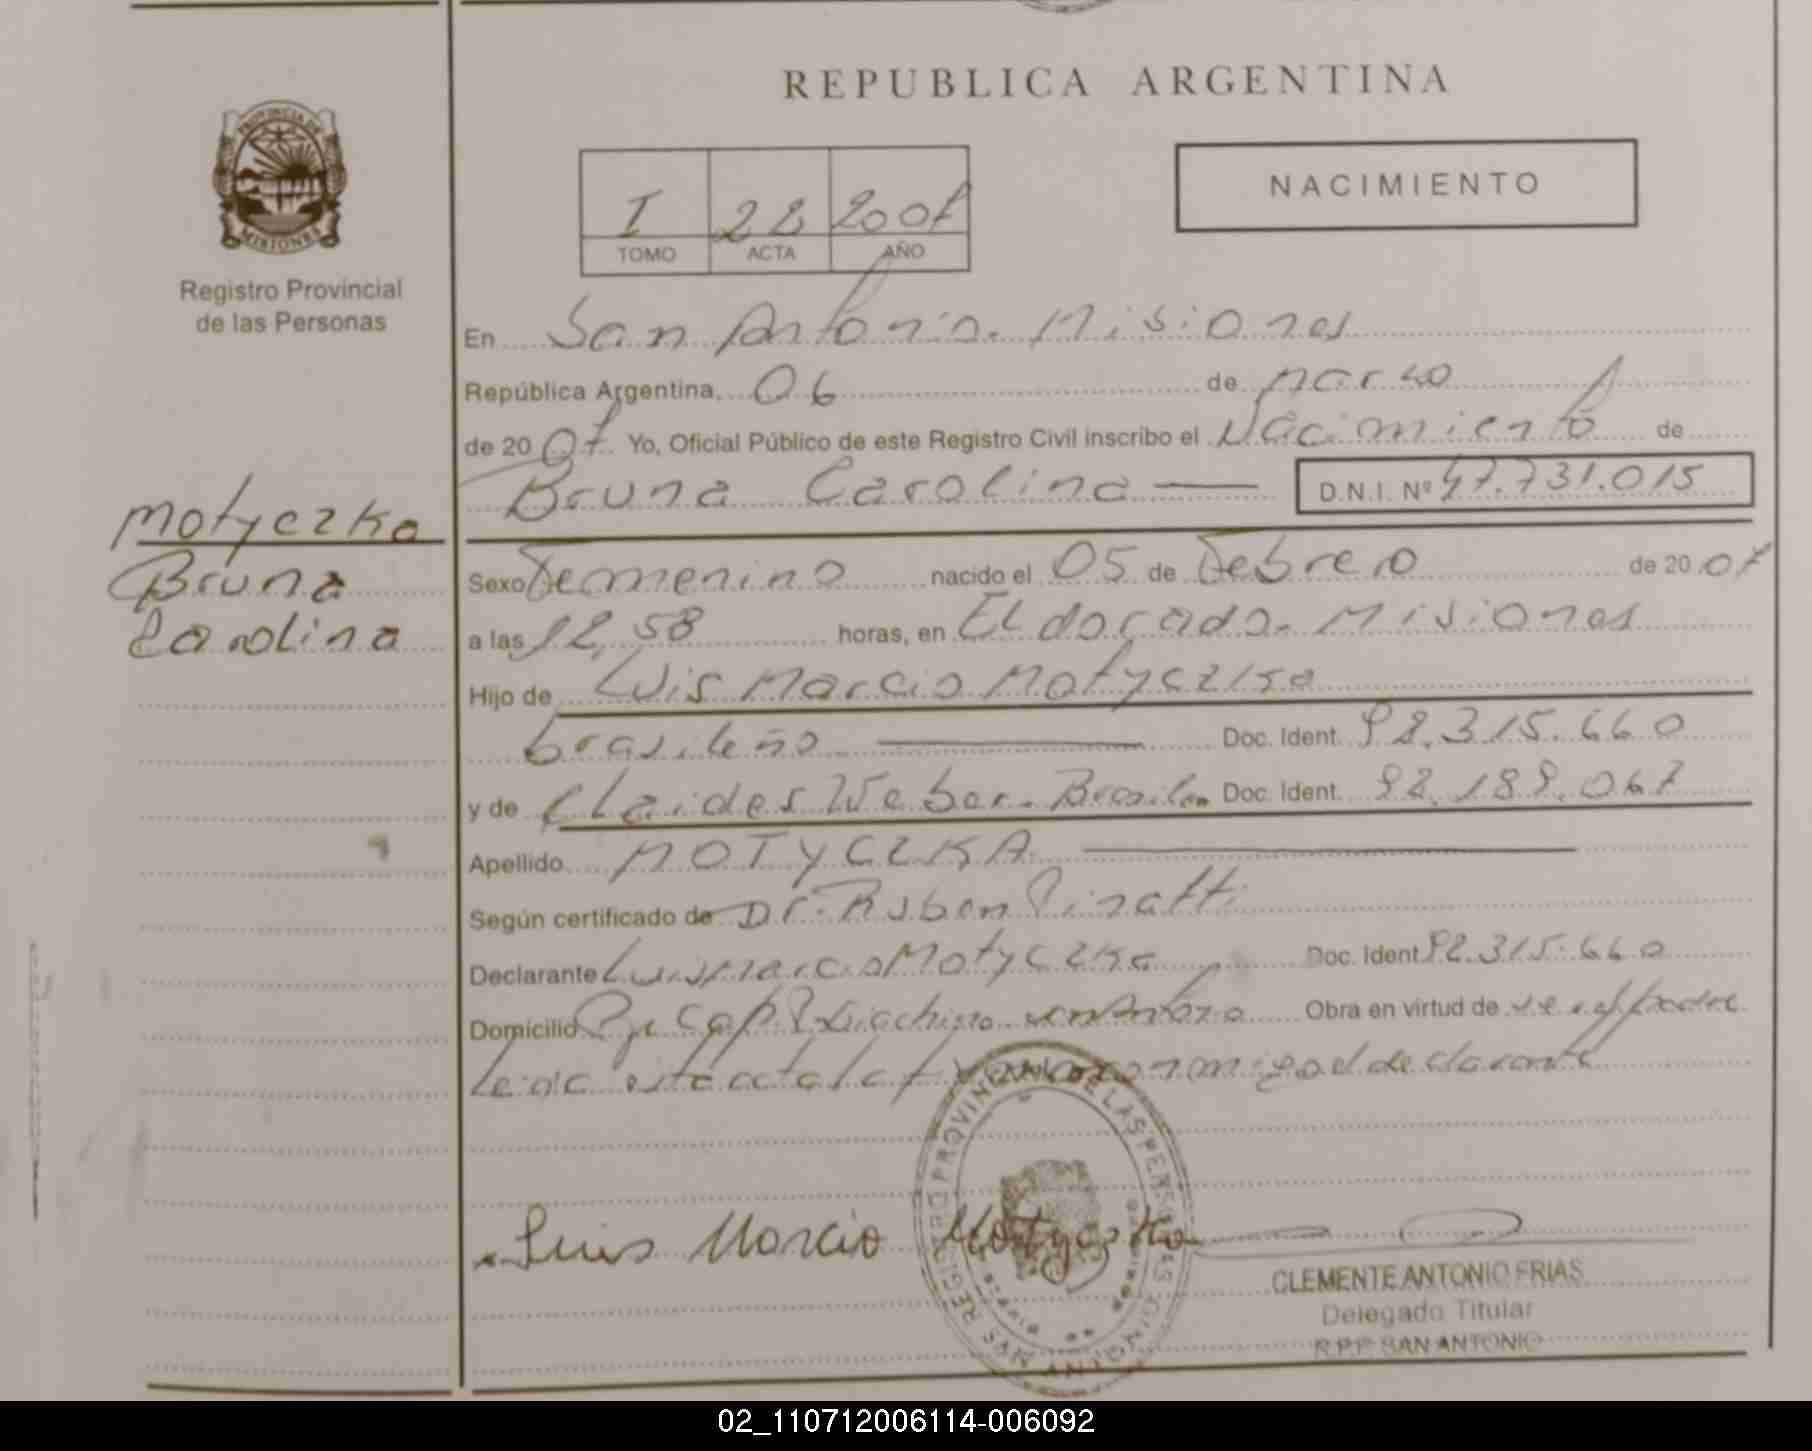 REPUBLICA ARGENTINA
PROVINCIA DE
MISIONES
Registro Provincial
de las Personas
I 22 2007
TOMO ACTA AÑO
NACIMIENTO
En San Antonio. Misiones
República Argentina, 06 de Marzo
de 20 07 Yo, Oficial Público de este Registro Civil inscribo el Nacimiento de
Bruna Carolina D.N.I. Nº 47.731.015
Motyczka
Bruna
Carolina
Sexo Femenino nacido el 05 de Febrero de 20 07
a las 12,58 horas, en Eldorado. Misiones
Hijo de Luis Marcio Motyczka
brasileño Doc. Ident. 92.315.660
y de Claides Weber. Doc. Ident. 92.189.067
Apellido MOTYCZKA
Según certificado de Dr. Ruben Pinatti
Declarante Luis Marcio Motyczka Doc. Ident 92.315.660
Domicilio Obra en virtud de ser el padre
Leida esta acta la firma conmigo el declarante
Luis Marcio Motyczka
CLEMENTE ANTONIO FRIAS
Delegado Titular
R.P.P. SAN ANTONIO
02_110712006114-006092